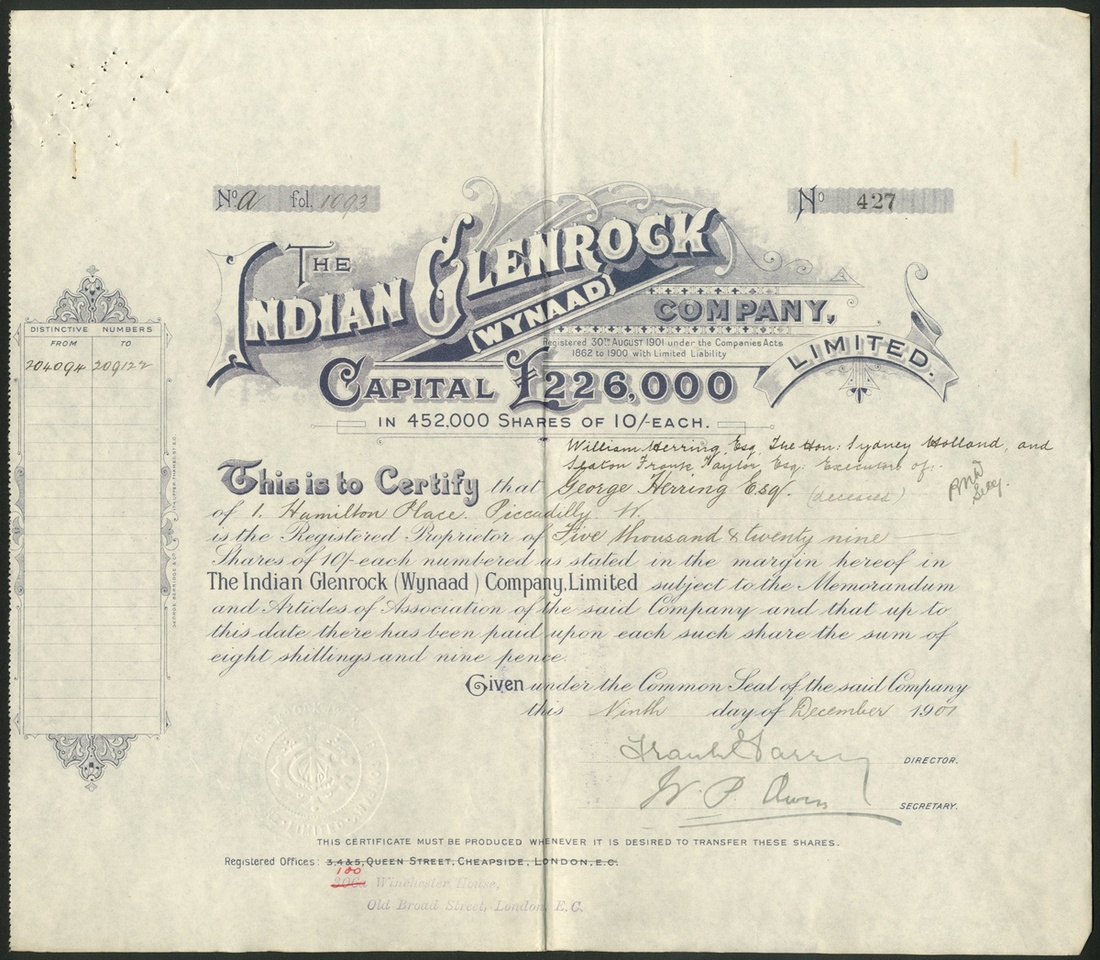 No A fol. 1093
No 427
THE
INDIAN GLENROCK
(WYNAAD)
COMPANY,
LIMITED.
Registered 30TH AUGUST 1901 under the Companies Acts
1862 to 1900 with Limited Liability
CAPITAL £226,000
IN 452,000 SHARES OF 10/- EACH.
DISTINCTIVE NUMBERS
FROM TO
204094 209122
William Herring, Esq, The Hon: Sydney Holland, and
Seaton Frank Taylor Esq: Executors of:
This is to Certify that George Herring Esq. (deceased)
of 1. Hamilton Place. Piccadilly W.
is the Registered Proprietor of Five thousand & twenty nine
Shares of 10/- each numbered as stated in the margin hereof in
The Indian Glenrock (Wynaad) Company, Limited subject to the Memorandum
and Articles of Association of the said Company and that up to
this date there has been paid upon each such share the sum of
eight shillings and nine pence.
Given under the Common Seal of the said Company
this Ninth day of December 1901
DIRECTOR.
W. P. Owen
SECRETARY.
THIS CERTIFICATE MUST BE PRODUCED WHENEVER IT IS DESIRED TO TRANSFER THESE SHARES.
Registered Offices: 3,4&5, QUEEN STREET, CHEAPSIDE, LONDON, E.C.
180
Winchester House,
Old Broad Street, London, E.C.